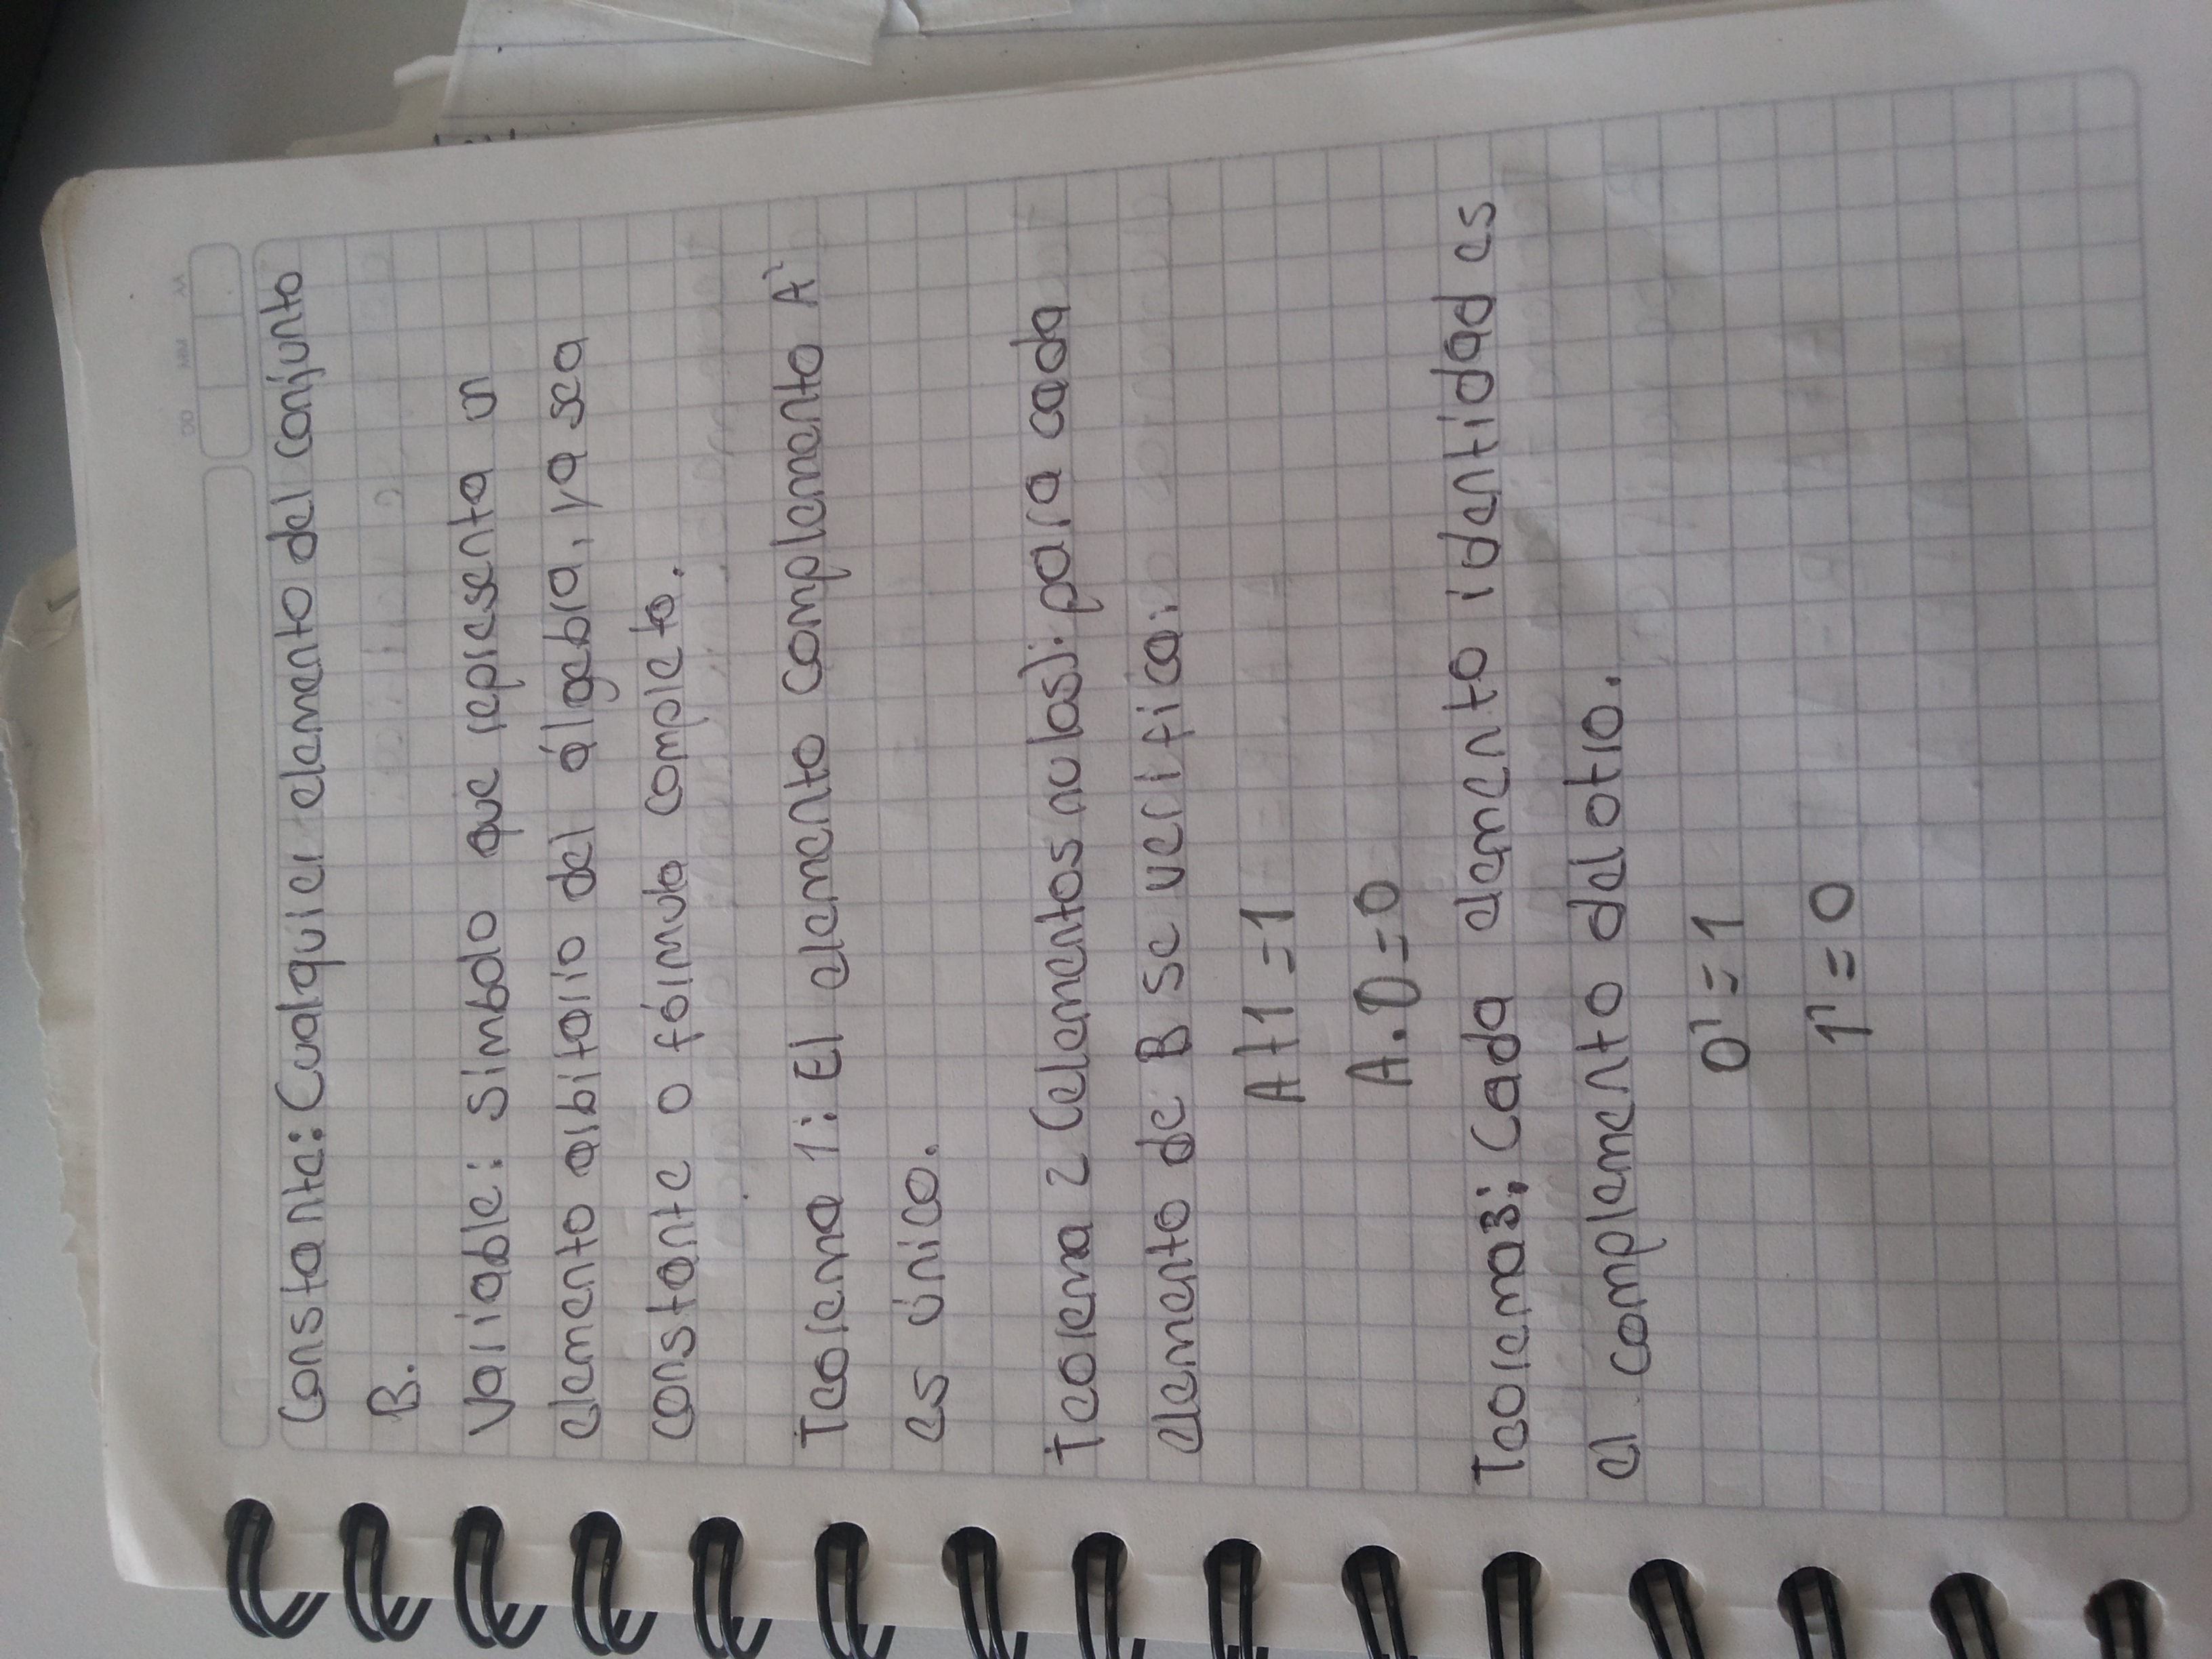 Constante: Cualquier elemento del conjunto
B.
Variable: Simbolo que representa un
elemento arbitrario del álgebra, ya sea
constante o fórmula completa.
Teorema 1: El elemento complemento A'
es único.
Teorema 2 (elementos nulos): para cada
elemento de B se verifica:
A+1=1
A.0=0
Teorema 3: Cada elemento identidad es
el complemento del otro.
0'=1
1'=0
DD MM AA